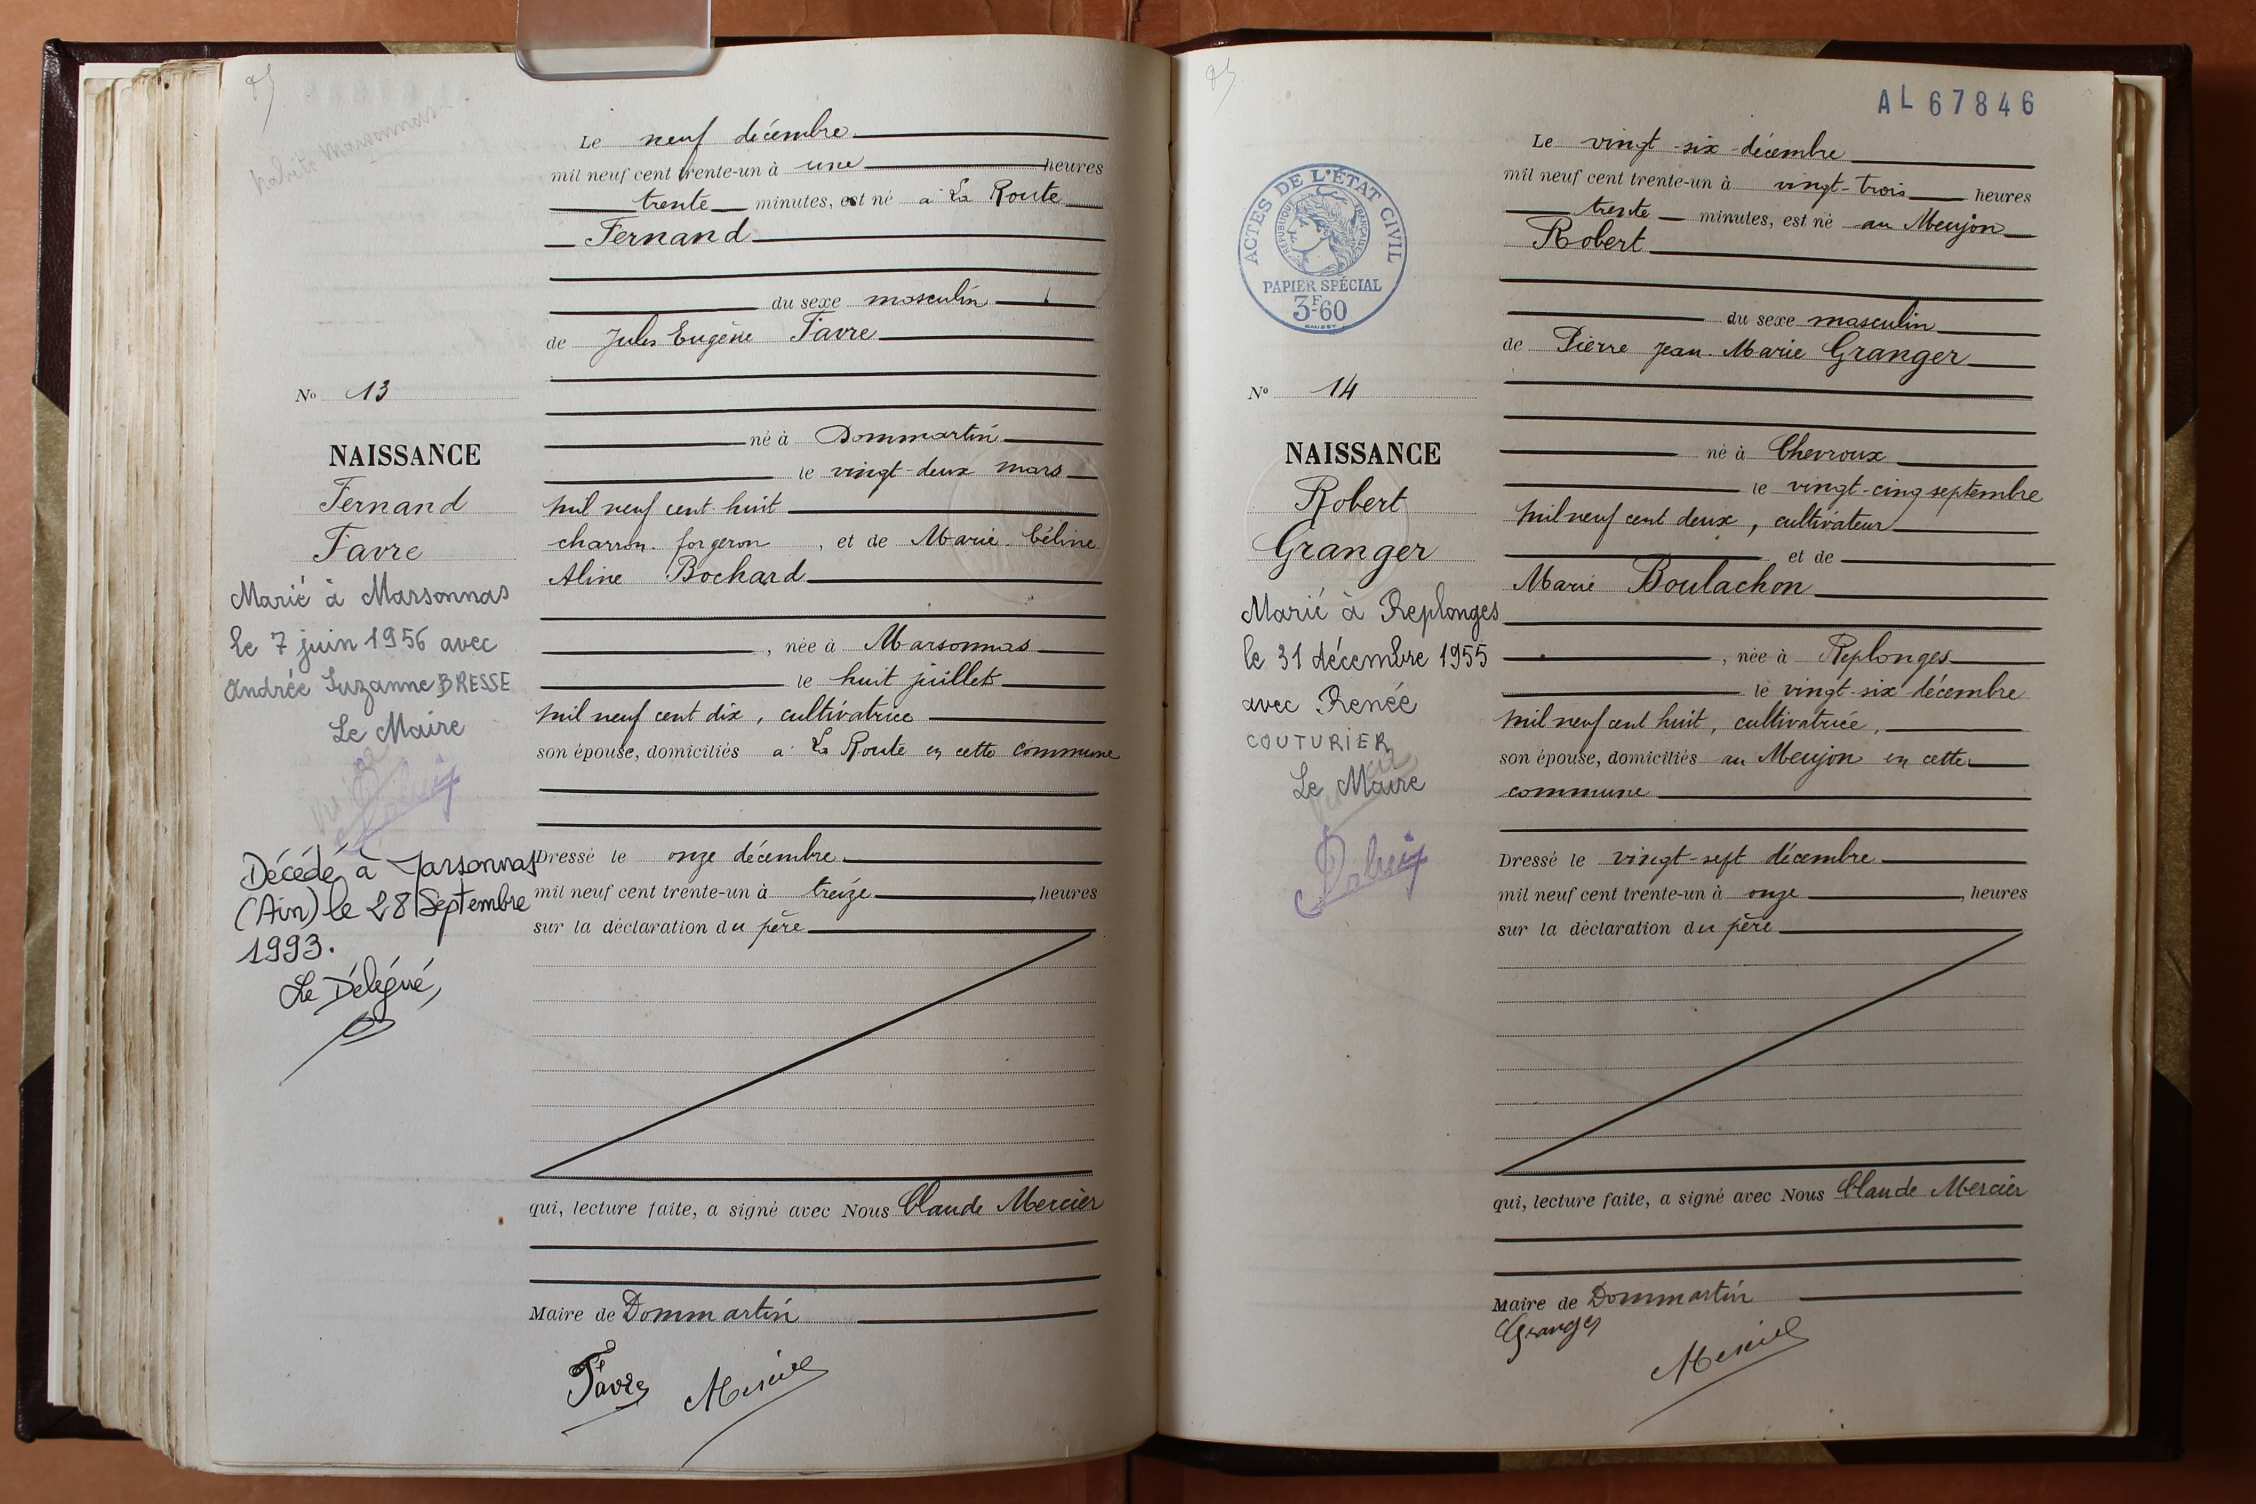 habite Marsonnas
Le neuf décembre
mil neuf cent trente-un à une heures
trente minutes, est né à La Route
Fernand
du sexe masculin
de Jules Eugène Favre
né à Dommartin
le vingt-deux mars
mil neuf cent huit
charron-forgeron, et de Marie-Céline
Aline Bochard
, née à Marsonnas
le huit juillet
mil neuf cent dix, cultivatrice
son épouse, domiciliés à La Route en cette commune
Dressé le onze décembre
mil neuf cent trente-un à treize, heures
sur la déclaration du père
qui, lecture faite, a signé avec Nous Claude Mercier
Maire de Dommartin
Favre Mercier
No 13
NAISSANCE
Fernand
Favre
Marié à Marsonnas
le 7 juin 1956 avec
Andrée Suzanne BRESSE
Le Maire
Décédé à Marsonnas
(Ain) le 28 Septembre
1993.
Le Délégué,
AL 67846
ACTES DE L'ÉTAT CIVIL
RÉPUBLIQUE FRANÇAISE
PAPIER SPÉCIAL
3F60
Le vingt-six décembre
mil neuf cent trente-un à vingt-trois heures
trente minutes, est né au Meujon
Robert
du sexe masculin
de Pierre Jean-Marie Granger
né à Chevroux
le vingt-cinq septembre
mil neuf cent deux, cultivateur
et de
Marie Boulachon
, née à Replonges
le vingt-six décembre
mil neuf cent huit, cultivatrice,
son épouse, domiciliés au Meujon en cette
commune
Dressé le vingt-sept décembre
mil neuf cent trente-un à onze, heures
sur la déclaration du père
qui, lecture faite, a signé avec Nous Claude Mercier
Maire de Dommartin
Granger
Mercier
No 14
NAISSANCE
Robert
Granger
Marié à Replonges
le 31 décembre 1955
avec Renée
COUTURIER
Le Maire